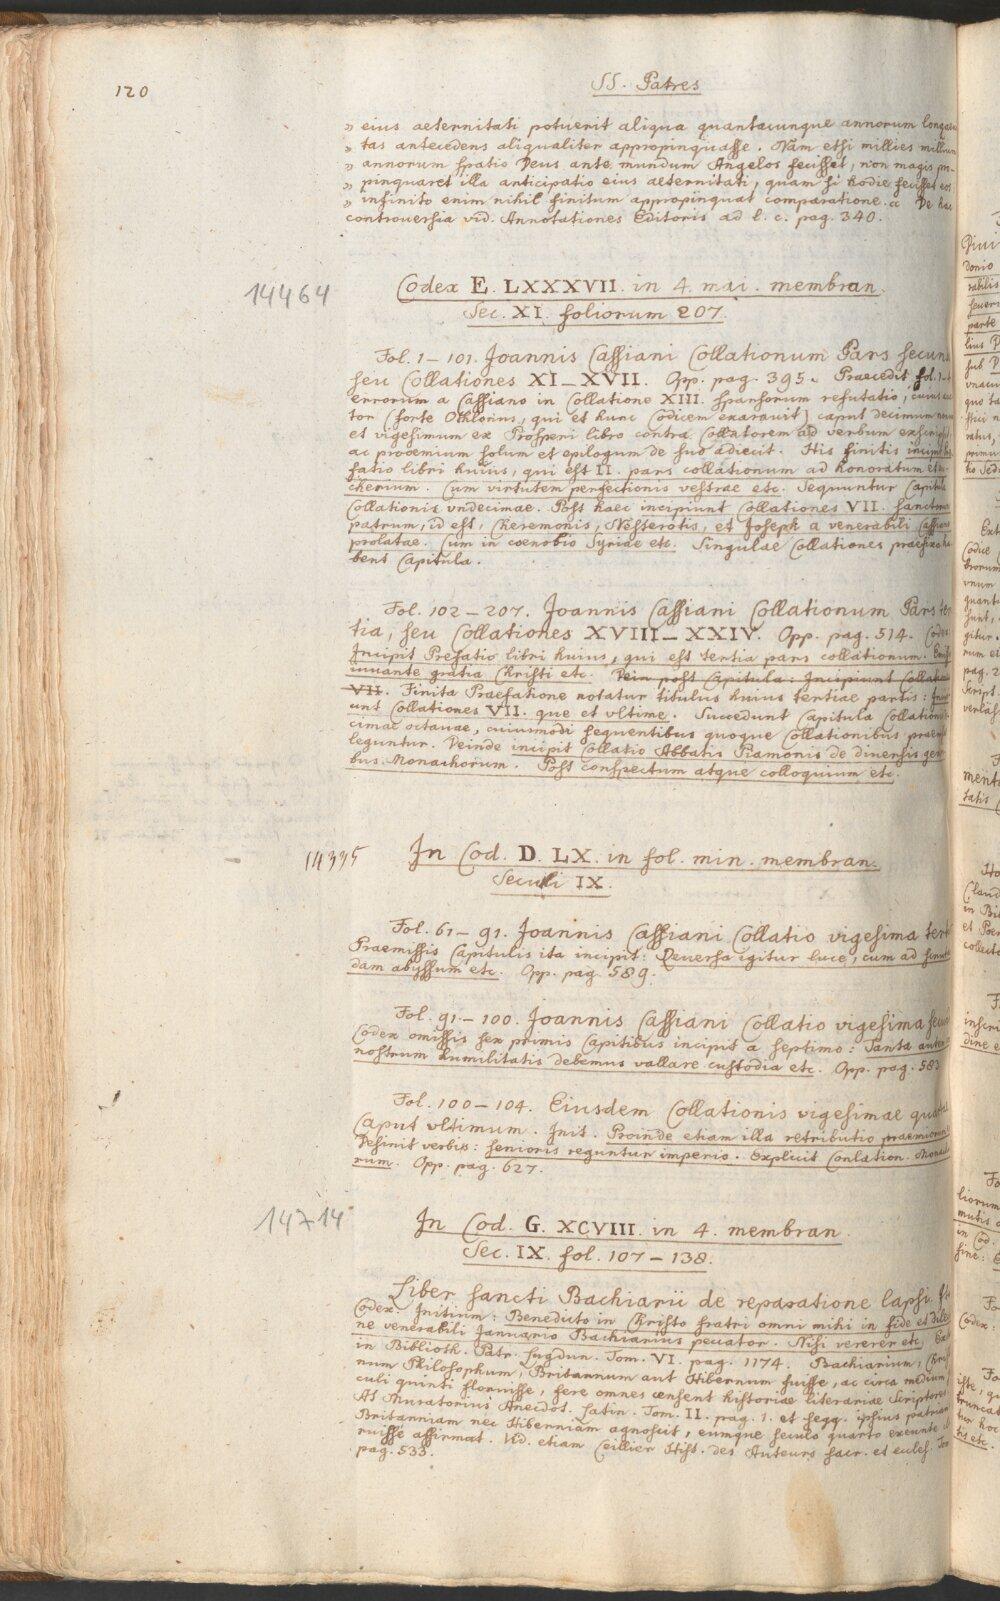 120
SS. Patres
» eius aeternitati potuerit aliqua quantacunque annorum longae
» tas antecedens aliqualiter appropinquasse. Nam etsi millies millium
» annorum spatio Deus ante mundum Angelos fecisset, non magis pro-
» pinquaret illa anticipatio eius aeternitati, quam si hodie fecisset eos
» infinito enim nihil finitum appropinquat comparatione. « De hac
controversia vid. Annotationes Editoris ad l. c. pag. 340.
14464
Codex E. LXXXVII. in 4. mai. membran.
Sec. XI. foliorum 207.
Fol. 1–101. Joannis Cassiani Collationum Pars secun
seu Collationes XI–XVII. Opp. pag. 395. Praecedit fol. 1
errorum a Cassiano in Collatione XIII. sparsorum refutatio, cuius auc
tor (forte Othlonus, qui et hunc Codicem exaravit) caput decimum
et vigesimum ex Prosperi libro contra Collatorem ad verbum exscripsit
ac prooemium solum et epilogum de suo adiecit. His finitis incipit
fatio libri huius, qui est II. pars collationum ad honoratum et
cherium. Cum virtutem perfectionis vestrae etc. Sequuntur Capitula
Collationis vndecimae. Post haec incipiunt Collationes VII. sanctorum
patrum, id est, Cheremonis, Nesserotis, et Joseph a venerabili Cassiano
prolatae. Cum in coenobio Syriae etc. Singulae Collationes praefixa ha
bent Capitula.
Fol. 102–207. Joannis Cassiani Collationum Pars ter
tia, seu Collationes XVIII–XXIV. Opp. pag. 514. Codex:
Incipit Prefatio libri huius, qui est tertia pars collationum.
iuuante gratia Christi etc. Dein post Capitula: Incipiunt Collationes
VII. Finita Praefatione notatur titulus huius tertiae partis: Incipi
unt Collationes VII. que et vltime. Succedunt Capitula Collationis
cimae octauae, cuiusmodi sequentibus quoque Collationibus
leguntur. Deinde incipit Collatio Abbatis Piamonis de diuersis gen
bus Monachorum. Post conspectum atque colloquium etc.
14335
In Cod. D. LX. in fol. min. membran.
Seculi IX.
Fol. 61–91. Joannis Cassiani Collatio vigesima tert
Praemissis Capitulis ita incipit: Reuersa igitur luce, cum ad
dam abyssum etc. Opp. pag. 589.
Fol. 91–100. Joannis Cassiani Collatio vigesima secun
Codex omissis sex primis Capitibus incipit a septimo: Tanta autem
nostrum humilitatis debemus vallare custodia etc. Opp. pag. 583
Fol. 100–104. Eiusdem Collationis vigesimae quartae
Caput vltimum. Init. Proinde etiam illa retributio praemiorum
Desinit verbis: senioris reguntur imperio. Explicit Conlation. Monacho
rum. Opp. pag. 627.
14714
In Cod. G. XCVIII. in 4. membran
Sec. IX. fol. 107–138.
Liber sancti Bachiarii de reparatione lapsi.
Codex: Initium: Benedicto in Christo fratri omni mihi in fide et dile
ne venerabili Januario Bachiarius peccator. Nisi vererer etc.
in Biblioth. Patr. Lugdun. Tom. VI. pag. 1174. Bachiarium,
num Philosophum, Britannum aut Hibernum fuisse, ac circa medium
culi quinti floruisse, fere omnes censent historiae literariae Scriptores
At Muratorius Anecdot. Latin. Tom. II. pag. 1. et seqq. ipsius patriam
Britanniam nec Hiberniam agnoscit, eumque seculo quarto exeunte
ruisse affirmat. Vid. etiam Ceillier Hist. des Auteurs sacr. et eccles. Tom
pag. 533.